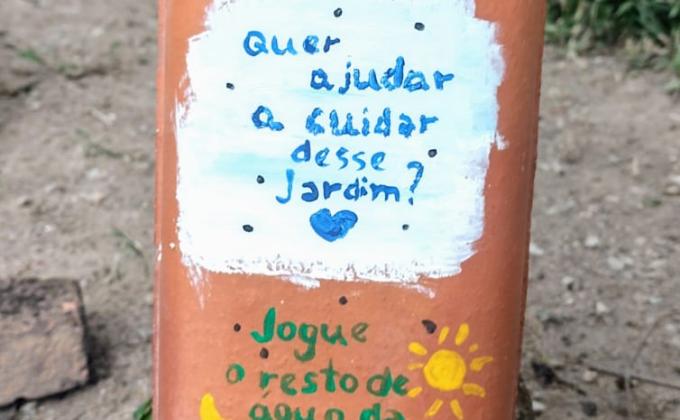 Quer
ajudar
a cuidar
desse
Jardim?
Jogue
o resto de
água da